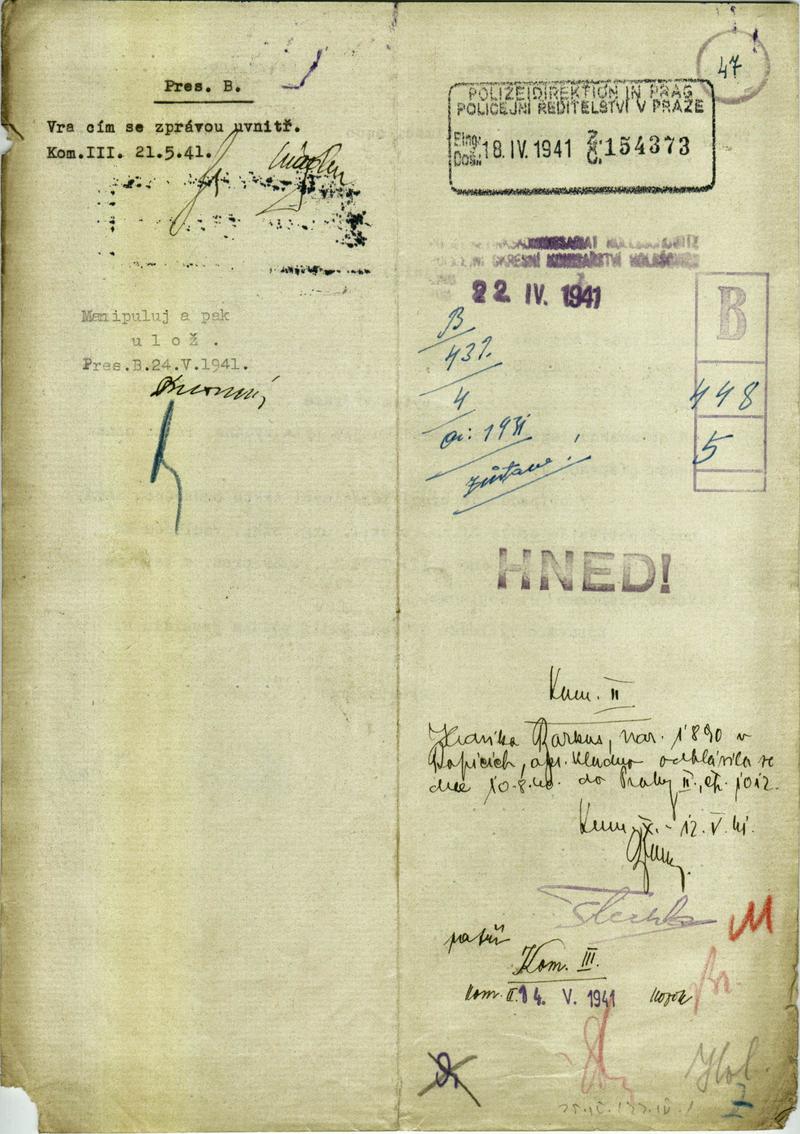 Pres. B.
Vra cím se zprávou uvnitř.
Kom.III. 21.5.41.
Manipuluj a pak
u l o ž .
Pres.B.24.V.1941.
47
POLIZEIDIREKTION IN PRAG
POLICEJNÍ ŘEDITELSTVÍ V PRAZE
Eing. Doš. 18. IV. 1941 Z. Č. 154373
KOMMISSARIAT HOLLESCHOWITZ
OKRESNÍ KOMISAŘSTVÍ HOLEŠOVICE
22. IV. 1941
B
437.
4
ai: 1931
zůstane!
B
448
5
HNED!
Kom. II
Barkus, nar. 1890 v
okr. Kladno odhlásila se
dne 10.8.40. do Prahy II., čp. 1012.
Kom. X. - 12. V. 41.
M
patří
Kom. III.
Kom. II. 14. V. 1941
Hol.